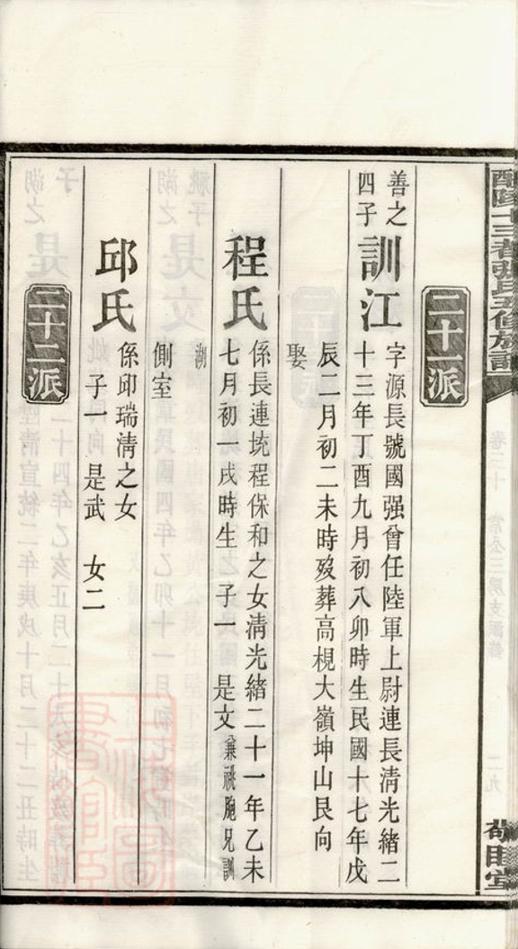 二十一派
善之
四子
訓江
字源長號國强曾任陸軍上尉連長清光緒二
十三年丁酉九月初八卯時生民國十七年戊
辰二月初二未時歿葬高梘大嶺坤山艮向
娶
程氏
係長連坑程保和之女清光緒二十一年乙未
七月初一戌時生 子一 是文 兼祧胞兄訓
湖
側室
邱氏
係印瑞清之女
子一 是武 女二
二十二派